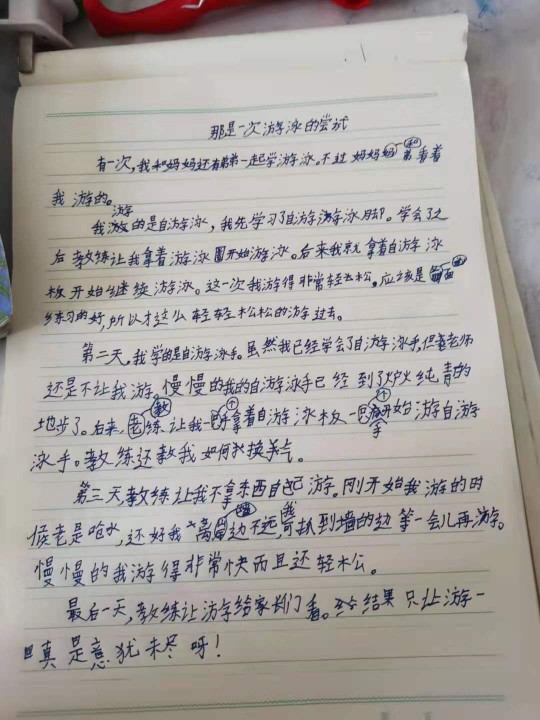 那是一次游泳的尝试
有一次,我和妈妈还有弟弟一起学游泳。不过妈妈和弟看着
我游的。
我游的是自游泳,我先学习了自游泳脚。学会了之
后教练让我拿着游泳圈开始游泳。后来我就拿着自游泳
板开始继续游泳。这一次我游得非常轻松。应该是
练习的好,所以才这么轻轻松松的游过去。
第二天,我学的是自游泳手。虽然我已经学会了自游泳手,但是老师
还是不让我游,慢慢的我的自游泳手已经到了炉火纯青的
地步了。后来,教练让我一个手拿着自游泳板一个手开始游自游
泳手。教练还教我如何换气。
第三天,教练让我不拿东西自己游。刚开始我游的时
候老是呛水,还好我离边不远,我可扒到墙的边等一会儿再游。
慢慢的我游得非常快而且还轻松。
最后一天,教练让游给家长们看。结果只让游一
回真是意犹未尽呀!